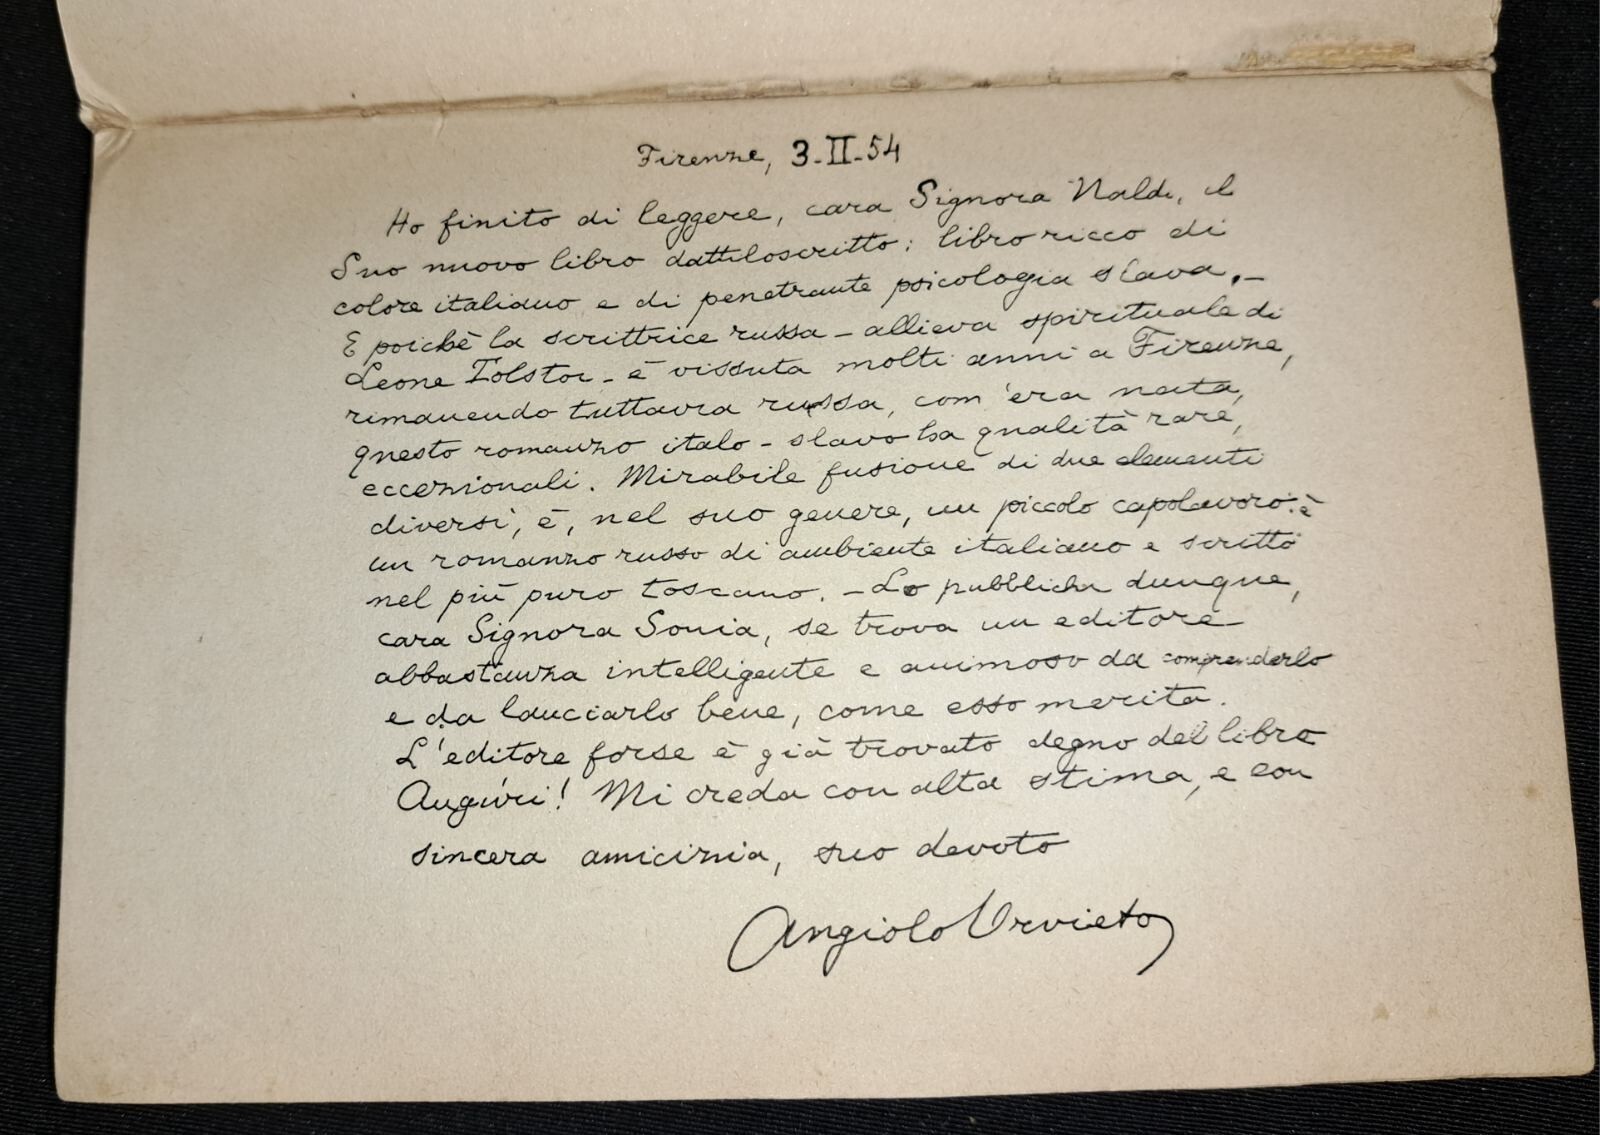 Firenze, 3-II-54
Ho finito di leggere, cara Signora Naldi, il
Suo nuovo libro dattiloscritto: libro ricco di
colore italiano e di penetrante psicologia slava.-
E poichè la scrittrice russa - allieva spirituale di
Leone Tolstoi - è vissuta molti anni a Firenze,
rimanendo tuttavia russa, com'era nata,
questo romanzo italo - slavo ha qualità rare,
eccezionali. Mirabile fusione di due elementi
diversi, è, nel suo genere, un piccolo capolavoro: è
un romanzo russo di ambiente italiano e scritto
nel più puro toscano. - Lo pubblichi dunque,
cara Signora Sonia, se trova un editore
abbastanza intelligente e animoso da comprenderlo
e da lanciarlo bene, come esso merita.
L'editore forse è già trovato degno del libro
Augúri! Mi creda con alta stima, e con
sincera amicizia, suo devoto
Angiolo Orvieto